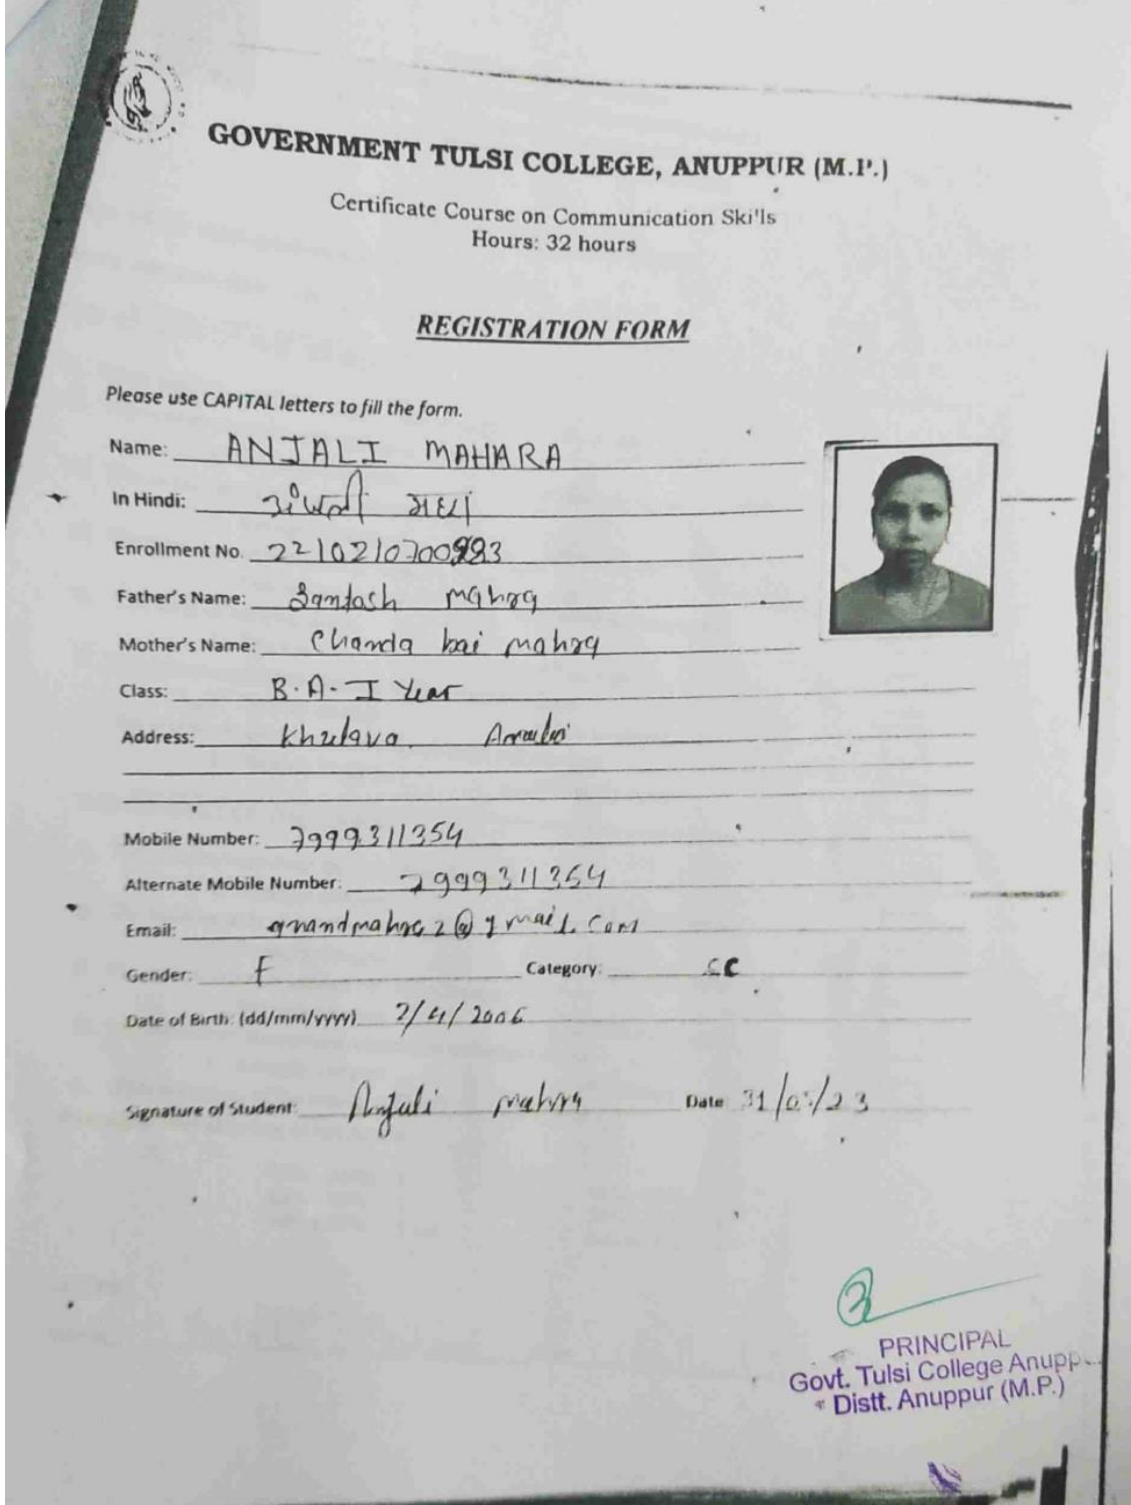 GOVERNMENT TULSI COLLEGE, ANUPPUR (M.P.)
Certificate Course on Communication Skills
Hours: 32 hours
REGISTRATION FORM
Please use CAPITAL letters to fill the form.
Name: ANJALI MAHARA
In Hindi:
Enrollment No.
Father's Name: Santosh mahra
Mother's Name: Chanda bai mahra
Class: B.A- I Year
Address:
Mobile Number: 7999311354
Alternate Mobile Number: 7999311354
Email:
Gender: F Category: SC
Date of Birth: (dd/mm/yyyy) 2/4/2006
Signature of Student: Anjali mahra Date
PRINCIPAL
Govt. Tulsi College
Distt. Anuppur (M.P.)